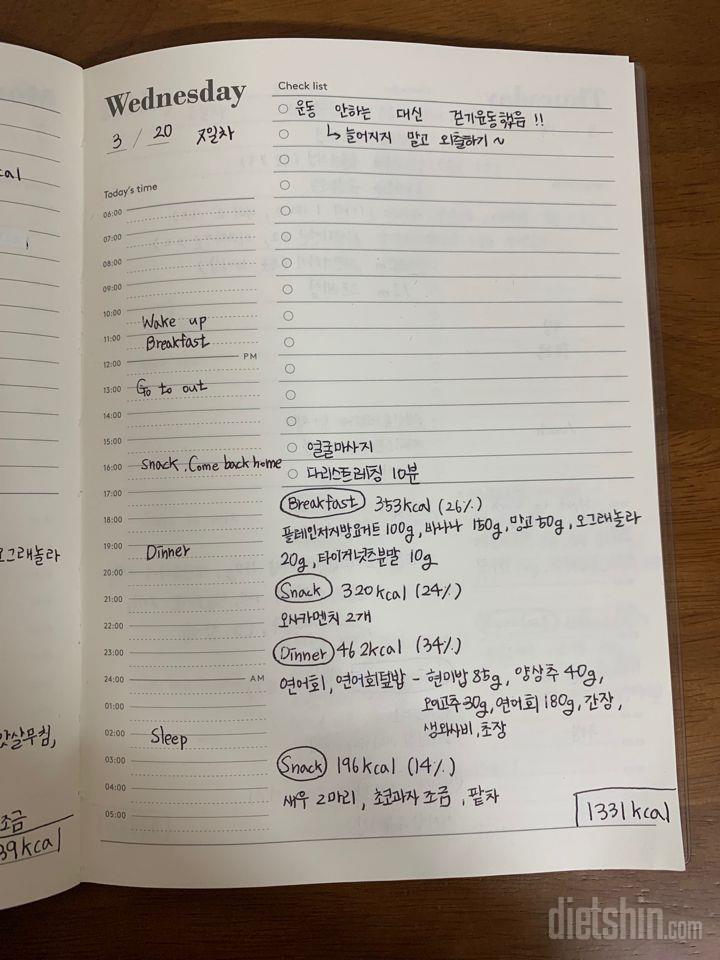 Wednesday
3 / 20 日차
Today's time
06:00
07:00
08:00
09:00
10:00
Wake up
11:00 Breakfast
12:00 PM
13:00 Go to out
14:00
15:00
16:00 Snack, Come back home
17:00
18:00
19:00 Dinner
20:00
21:00
22:00
23:00
24:00 AM
01:00
02:00 Sleep
03:00
04:00
05:00
Check list
운동 안하는 대신 걷기운동했음 !!
↳ 늘어지지 말고 외출하기 ~
얼굴마사지
다리스트레칭 10분
Breakfast 353kcal (26%)
플레인저지방요거트 100g, 바나나 150g, 망고 50g, 오그래놀라
20g, 타이거넛츠분말 10g
Snack 320kcal (24%)
오사카멘치 2개
Dinner 462kcal (34%)
연어회, 연어회덮밥 - 현미밥 85g, 양상추 40g,
오이고추 30g, 연어회 180g, 간장,
생와사비, 초장
Snack 196kcal (14%)
새우 2마리, 초코과자 조금, 팥차
1331kcal
cal
오그래놀라
맛살무침,
조금
39kcal
dietshin.com